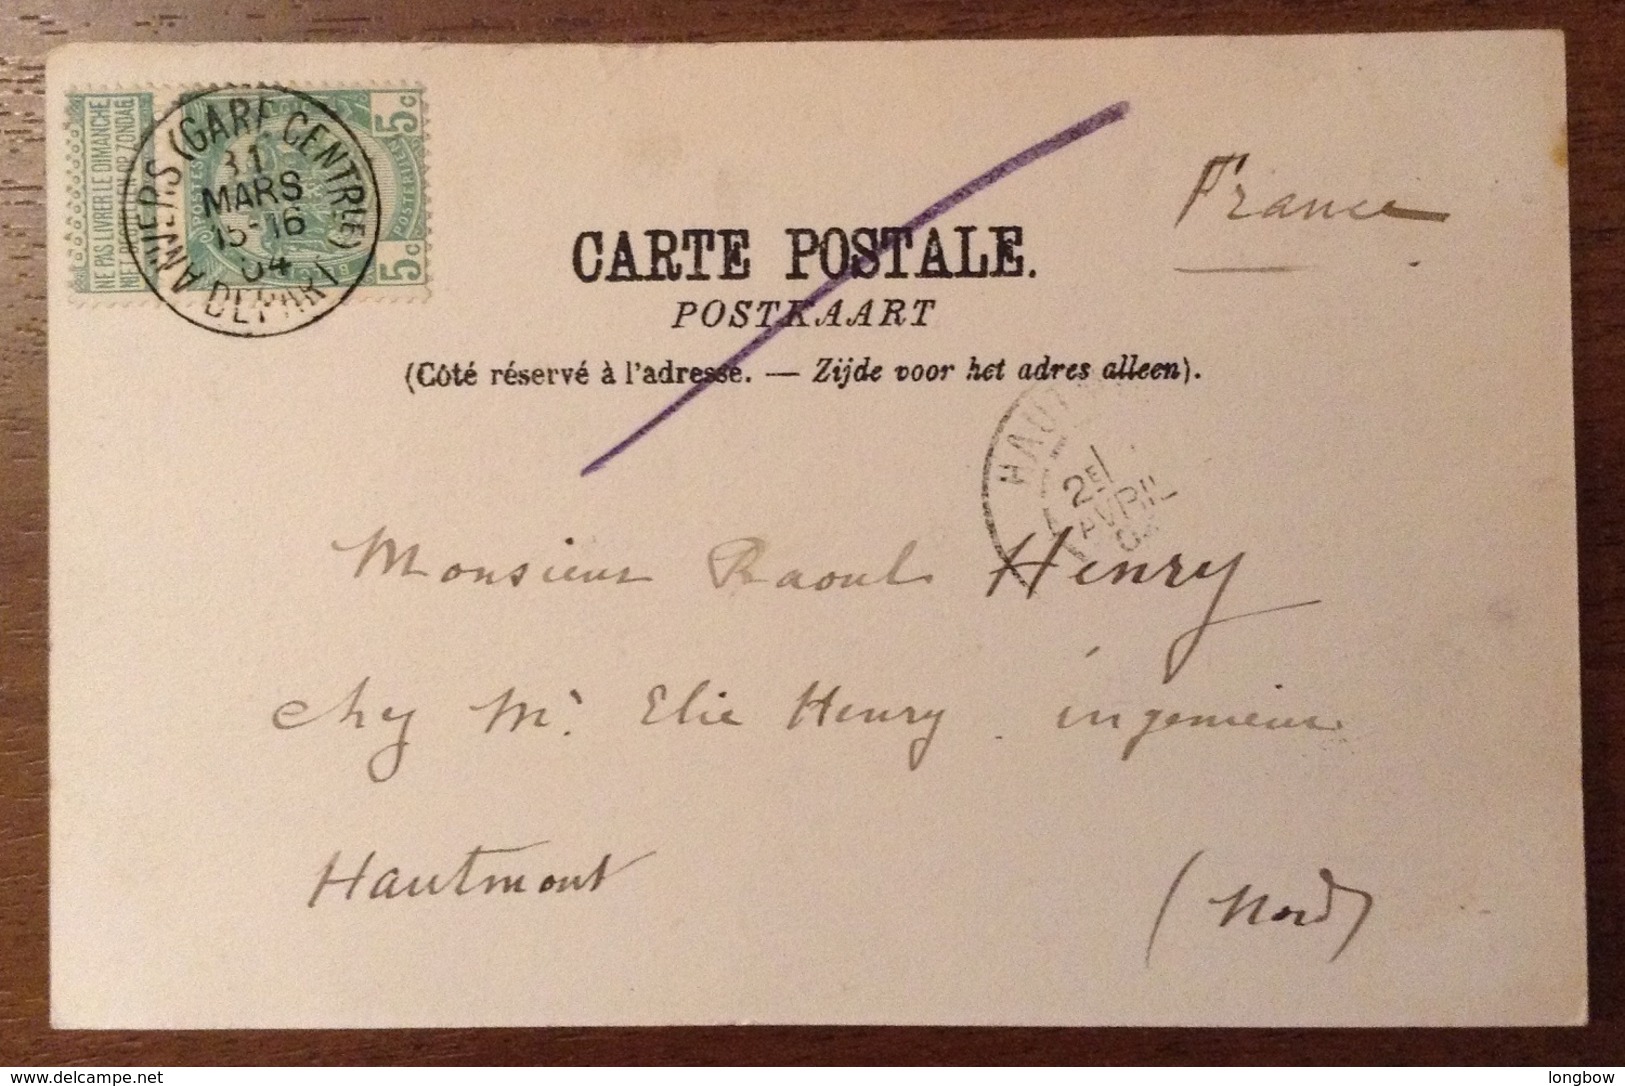 NE PAS LIVRER LE DIMANCHE
NIET BESTELLEN OP ZONDAG
POSTES
POSTERIJEN
5c
5c
ANVERS (GARE CENTRALE)
31
MARS
15-16
04
DEPART
France
CARTE POSTALE.
POSTKAART
(Côté réservé à l'adresse. — Zijde voor het adres alleen).
HAUT
2E
AVRIL
Monsieur Raoul Henry
chez Mr. Elie Henry ingenieur
Hautmont (Nord)
delcampe.net
longbow